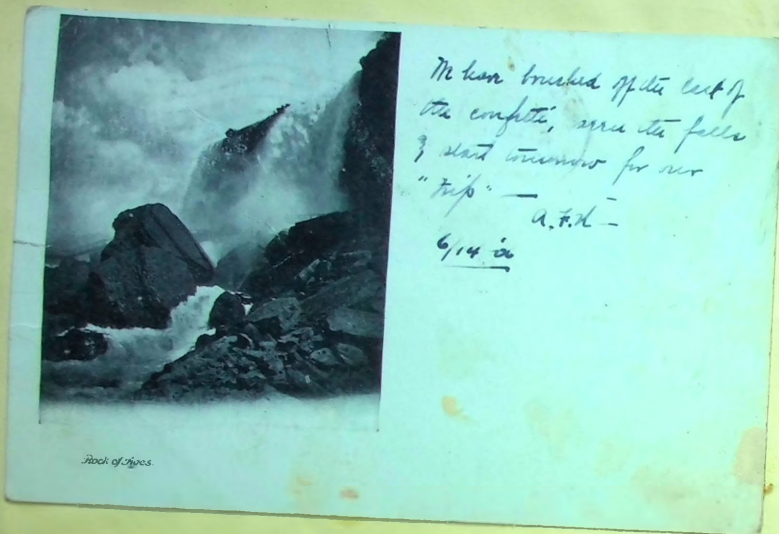 We have brushed off the last of
the confetti, seen the falls
& start tomorrow for our
"trip" —
A.F.H —
6/14
Rock of Ages.